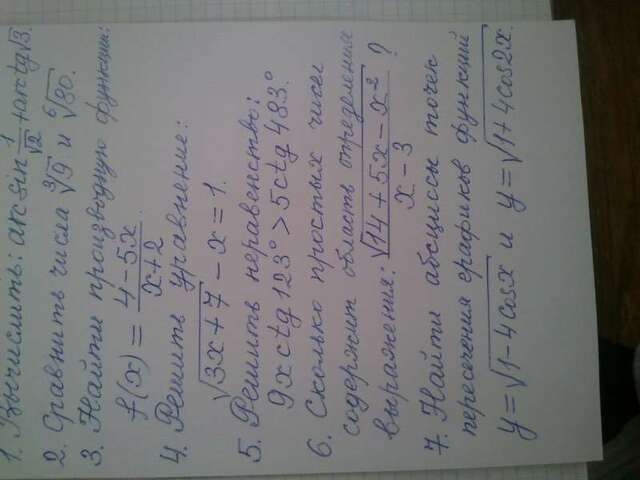 1. Вычислить: arcsin 1/√2 + arctg √3.
2. Сравнить числа ∛9 и ⁶√80.
3. Найти производную функции:
f(x) = (4-5x)/(x+2)
4. Решить уравнение:
√(3x+7) - x = 1.
5. Решить неравенство:
9x ctg 123° > 5 ctg 483°
6. Сколько простых чисел
содержит область определения
выражения: √(14+5x-x²)/(x-3) ?
7. Найти абсциссы точек
пересечения графиков функций
y=√(1-4cosx) и y=√(1+4cos2x).